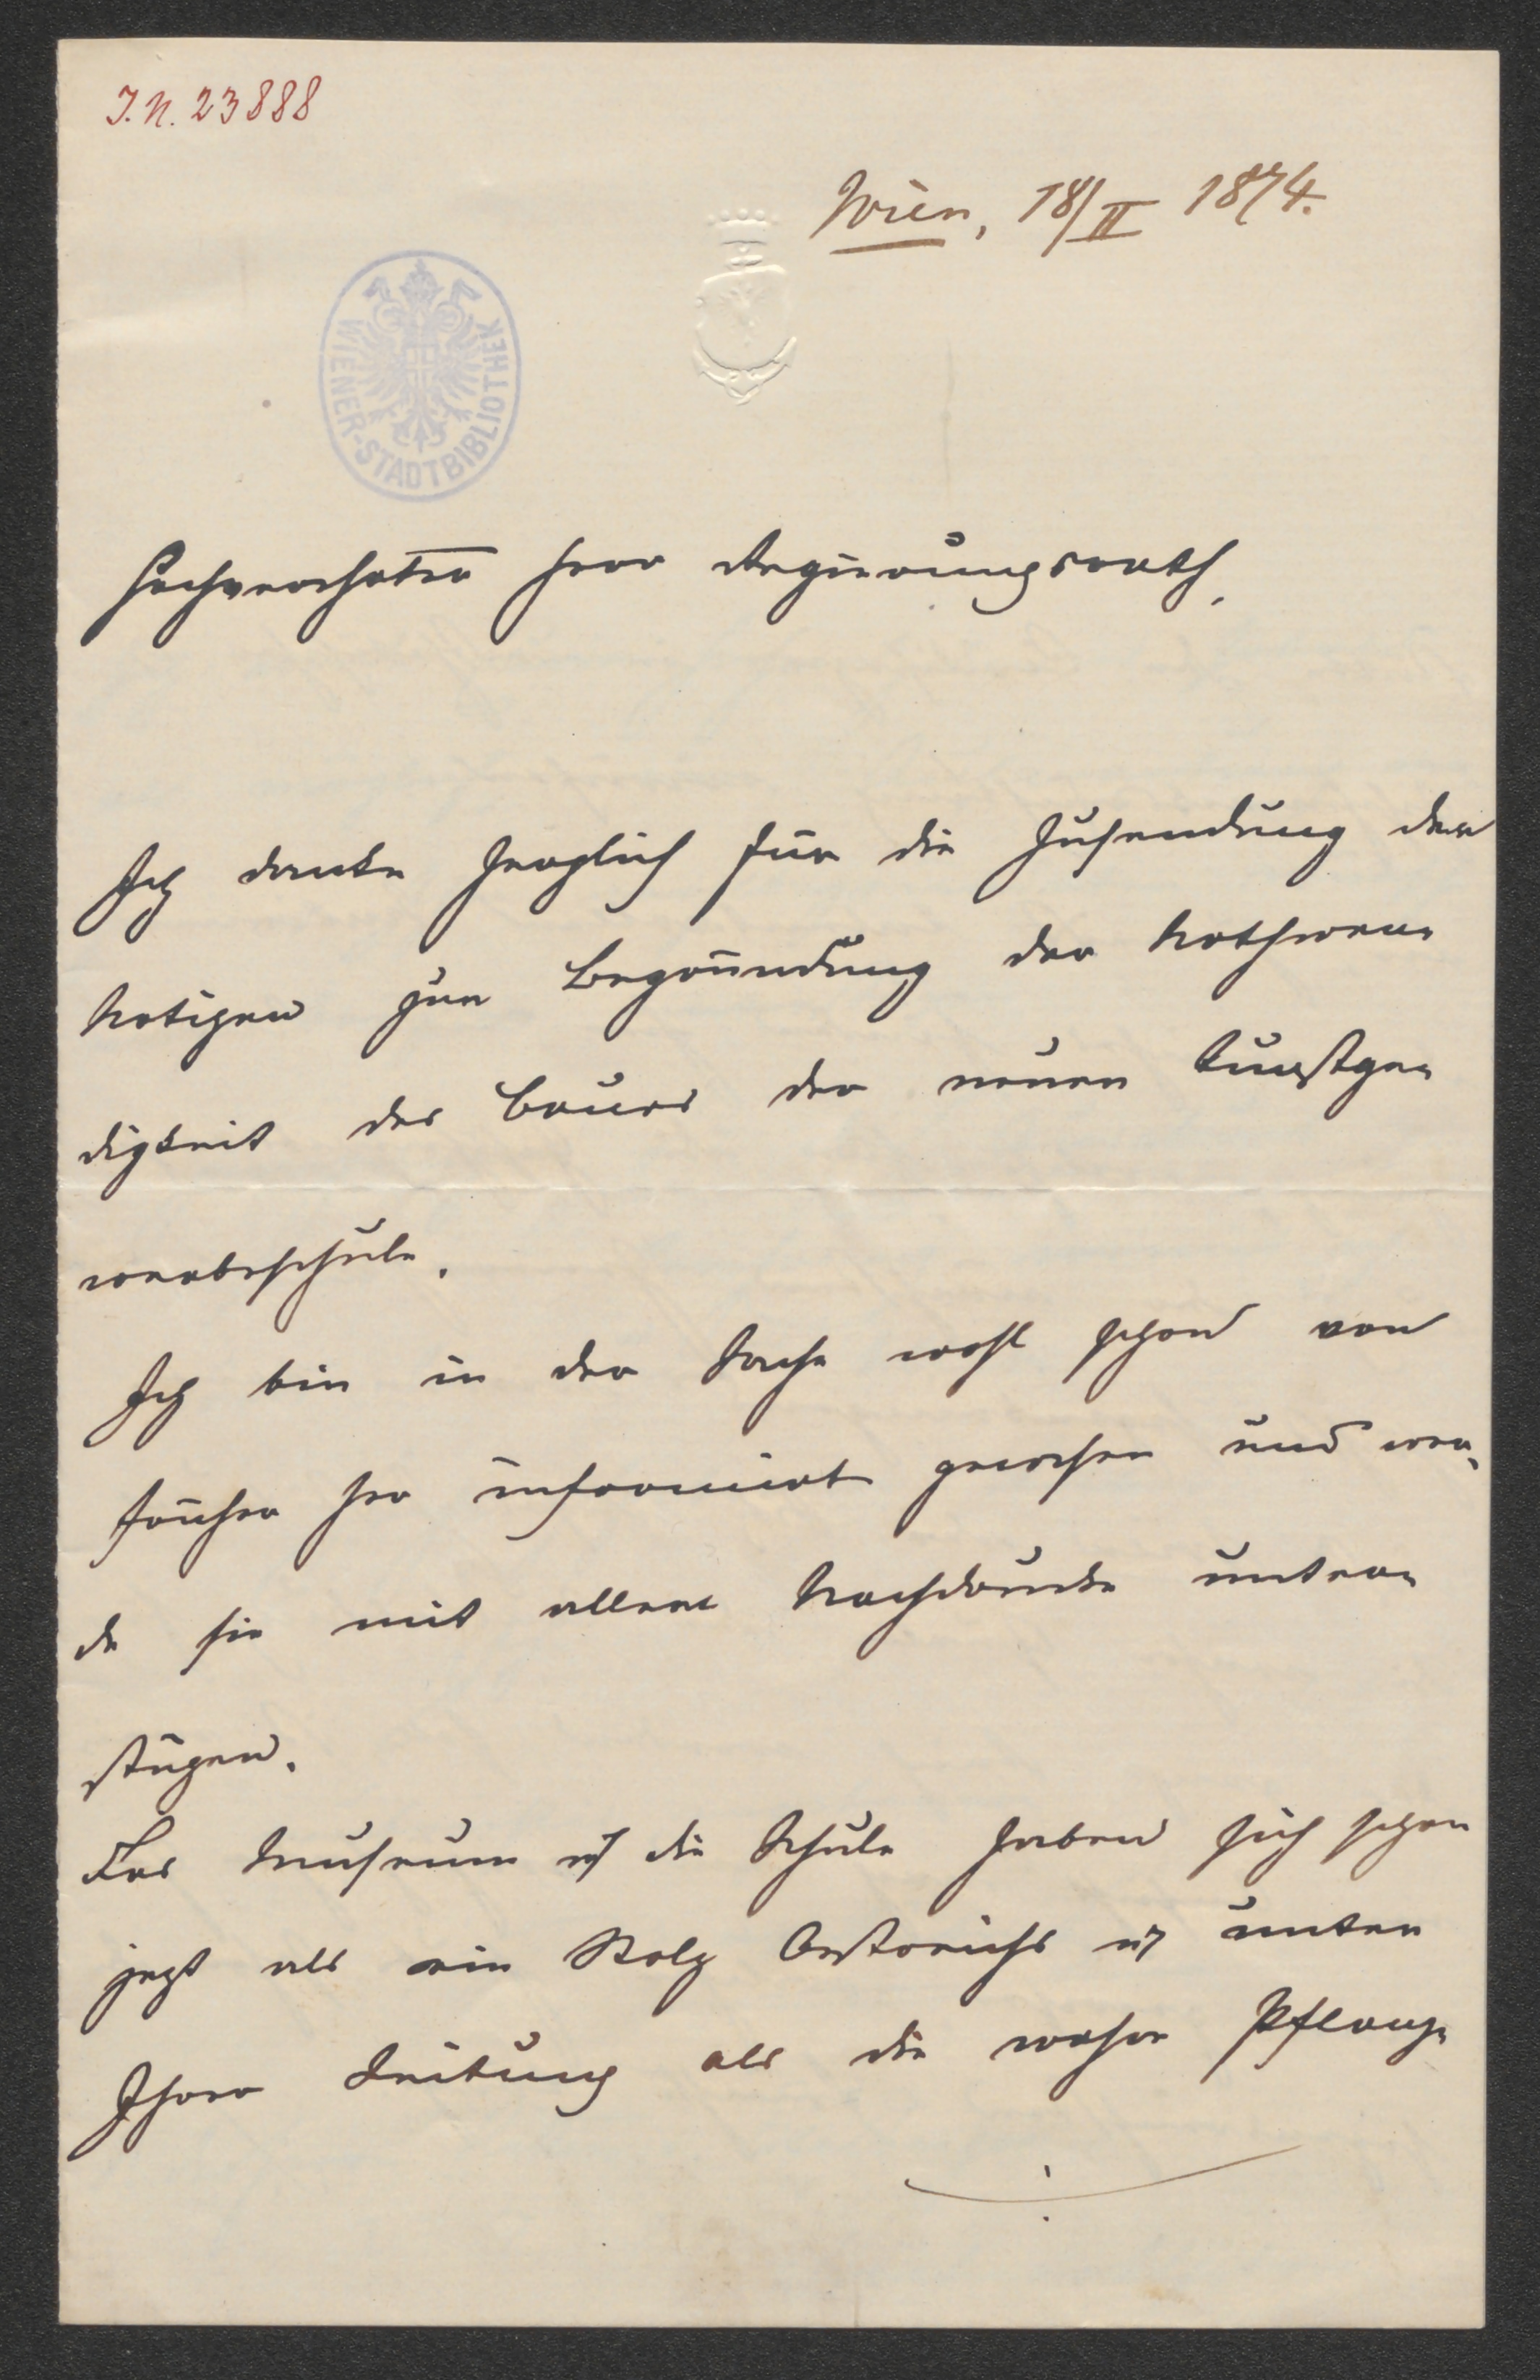 J.N. 23888
Wien, 18/II 1874.
WIENER-STADTBIBLIOTHEK
Hochverehrter Herr Regierungsrath,
Ich danke herzlich für die Zusendung der
Notizen zur Begründung der Nothwen-
digkeit des Baues der neuen Kunstge-
werbeschule.
Ich bin in der Sache wohl schon von
früher her informirt gewesen und wer-
de sie mit allem Nachdrucke unter-
stützen.
Das Museum u die Schule haben sich schon
jezt als ein Stolz Oestreichs u unter
Ihrer Leitung als die wahre Pflanz-